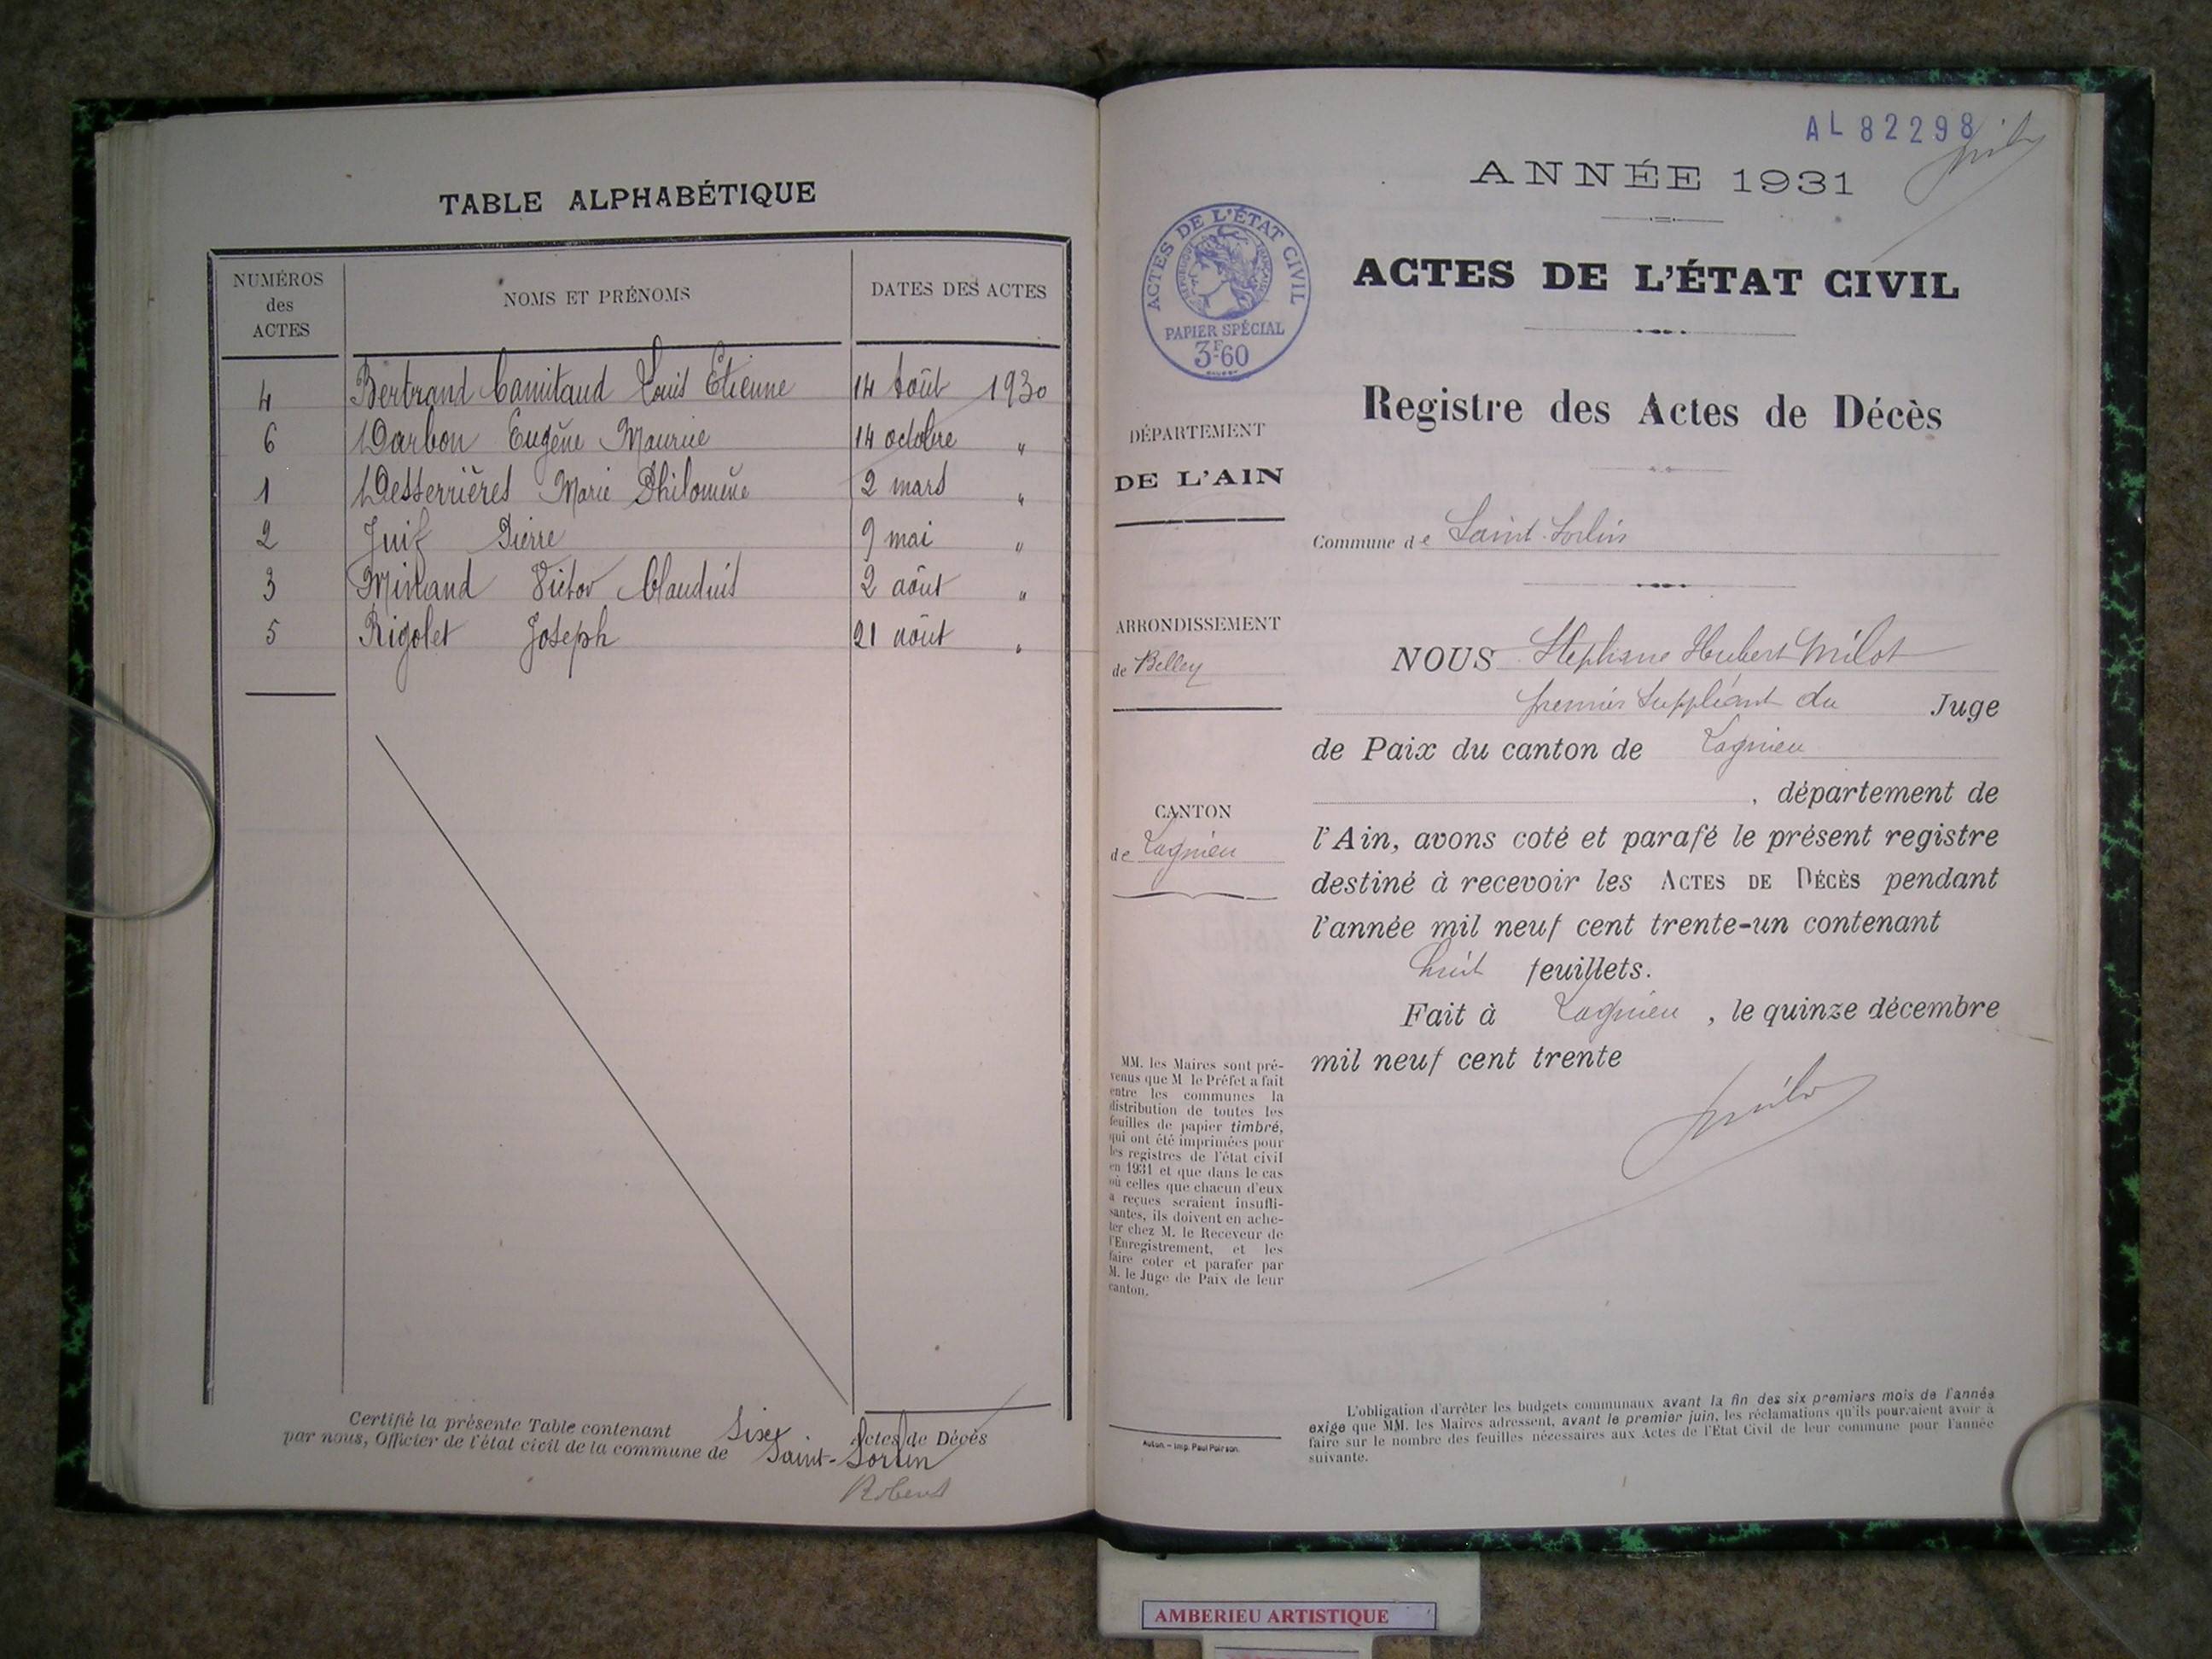 TABLE ALPHABÉTIQUE
NUMÉROS
des
ACTES
NOMS ET PRÉNOMS
DATES DES ACTES
4 Bertrand Camitaud Louis Etienne 14 août 1930
6 Darbon Eugène Maurice 14 octobre "
1 Desserrières Marie Philomène 2 mars "
2 Juif Pierre 9 mai "
3 Victor Claudius 2 août "
5 Rigolet Joseph 21 août "
Certifié la présente Table contenant Six Actes de Décès
par nous, Officier de l'état civil de la commune de Saint-Sorlin
AL 82298
ANNÉE 1931
ACTES DE L'ÉTAT CIVIL
RÉPUBLIQUE FRANÇAISE
PAPIER SPÉCIAL
3F60
ACTES DE L'ÉTAT CIVIL
Registre des Actes de Décès
DÉPARTEMENT
DE L'AIN
Commune de Saint-Sorlin
ARRONDISSEMENT
de Belley
CANTON
de Lagnieu
NOUS Stéphane Hubert Milot
premier suppléant du Juge
de Paix du canton de Lagnieu
, département de
l'Ain, avons coté et parafé le présent registre
destiné à recevoir les ACTES DE DÉCÈS pendant
l'année mil neuf cent trente-un contenant
huit feuillets.
Fait à Lagnieu, le quinze décembre
mil neuf cent trente
MM. les Maires sont pré-
venus que M. le Préfet a fait
entre les communes la
distribution de toutes les
feuilles de papier timbré,
qui ont été imprimées pour
les registres de l'état civil
en 1931 et que dans le cas
où celles que chacun d'eux
a reçues seraient insuffi-
santes, ils doivent en ache-
ter chez M. le Receveur de
l'Enregistrement, et les
faire coter et parafer par
M. le Juge de Paix de leur
canton.
Autun. — Imp. Paul Poirson.
L'obligation d'arrêter les budgets communaux avant la fin des six premiers mois de l'année
exige que MM. les Maires adressent, avant le premier juin, les réclamations qu'ils pourraient avoir à
faire sur le nombre des feuilles nécessaires aux Actes de l'Etat Civil de leur commune pour l'année
suivante.
AMBERIEU ARTISTIQUE